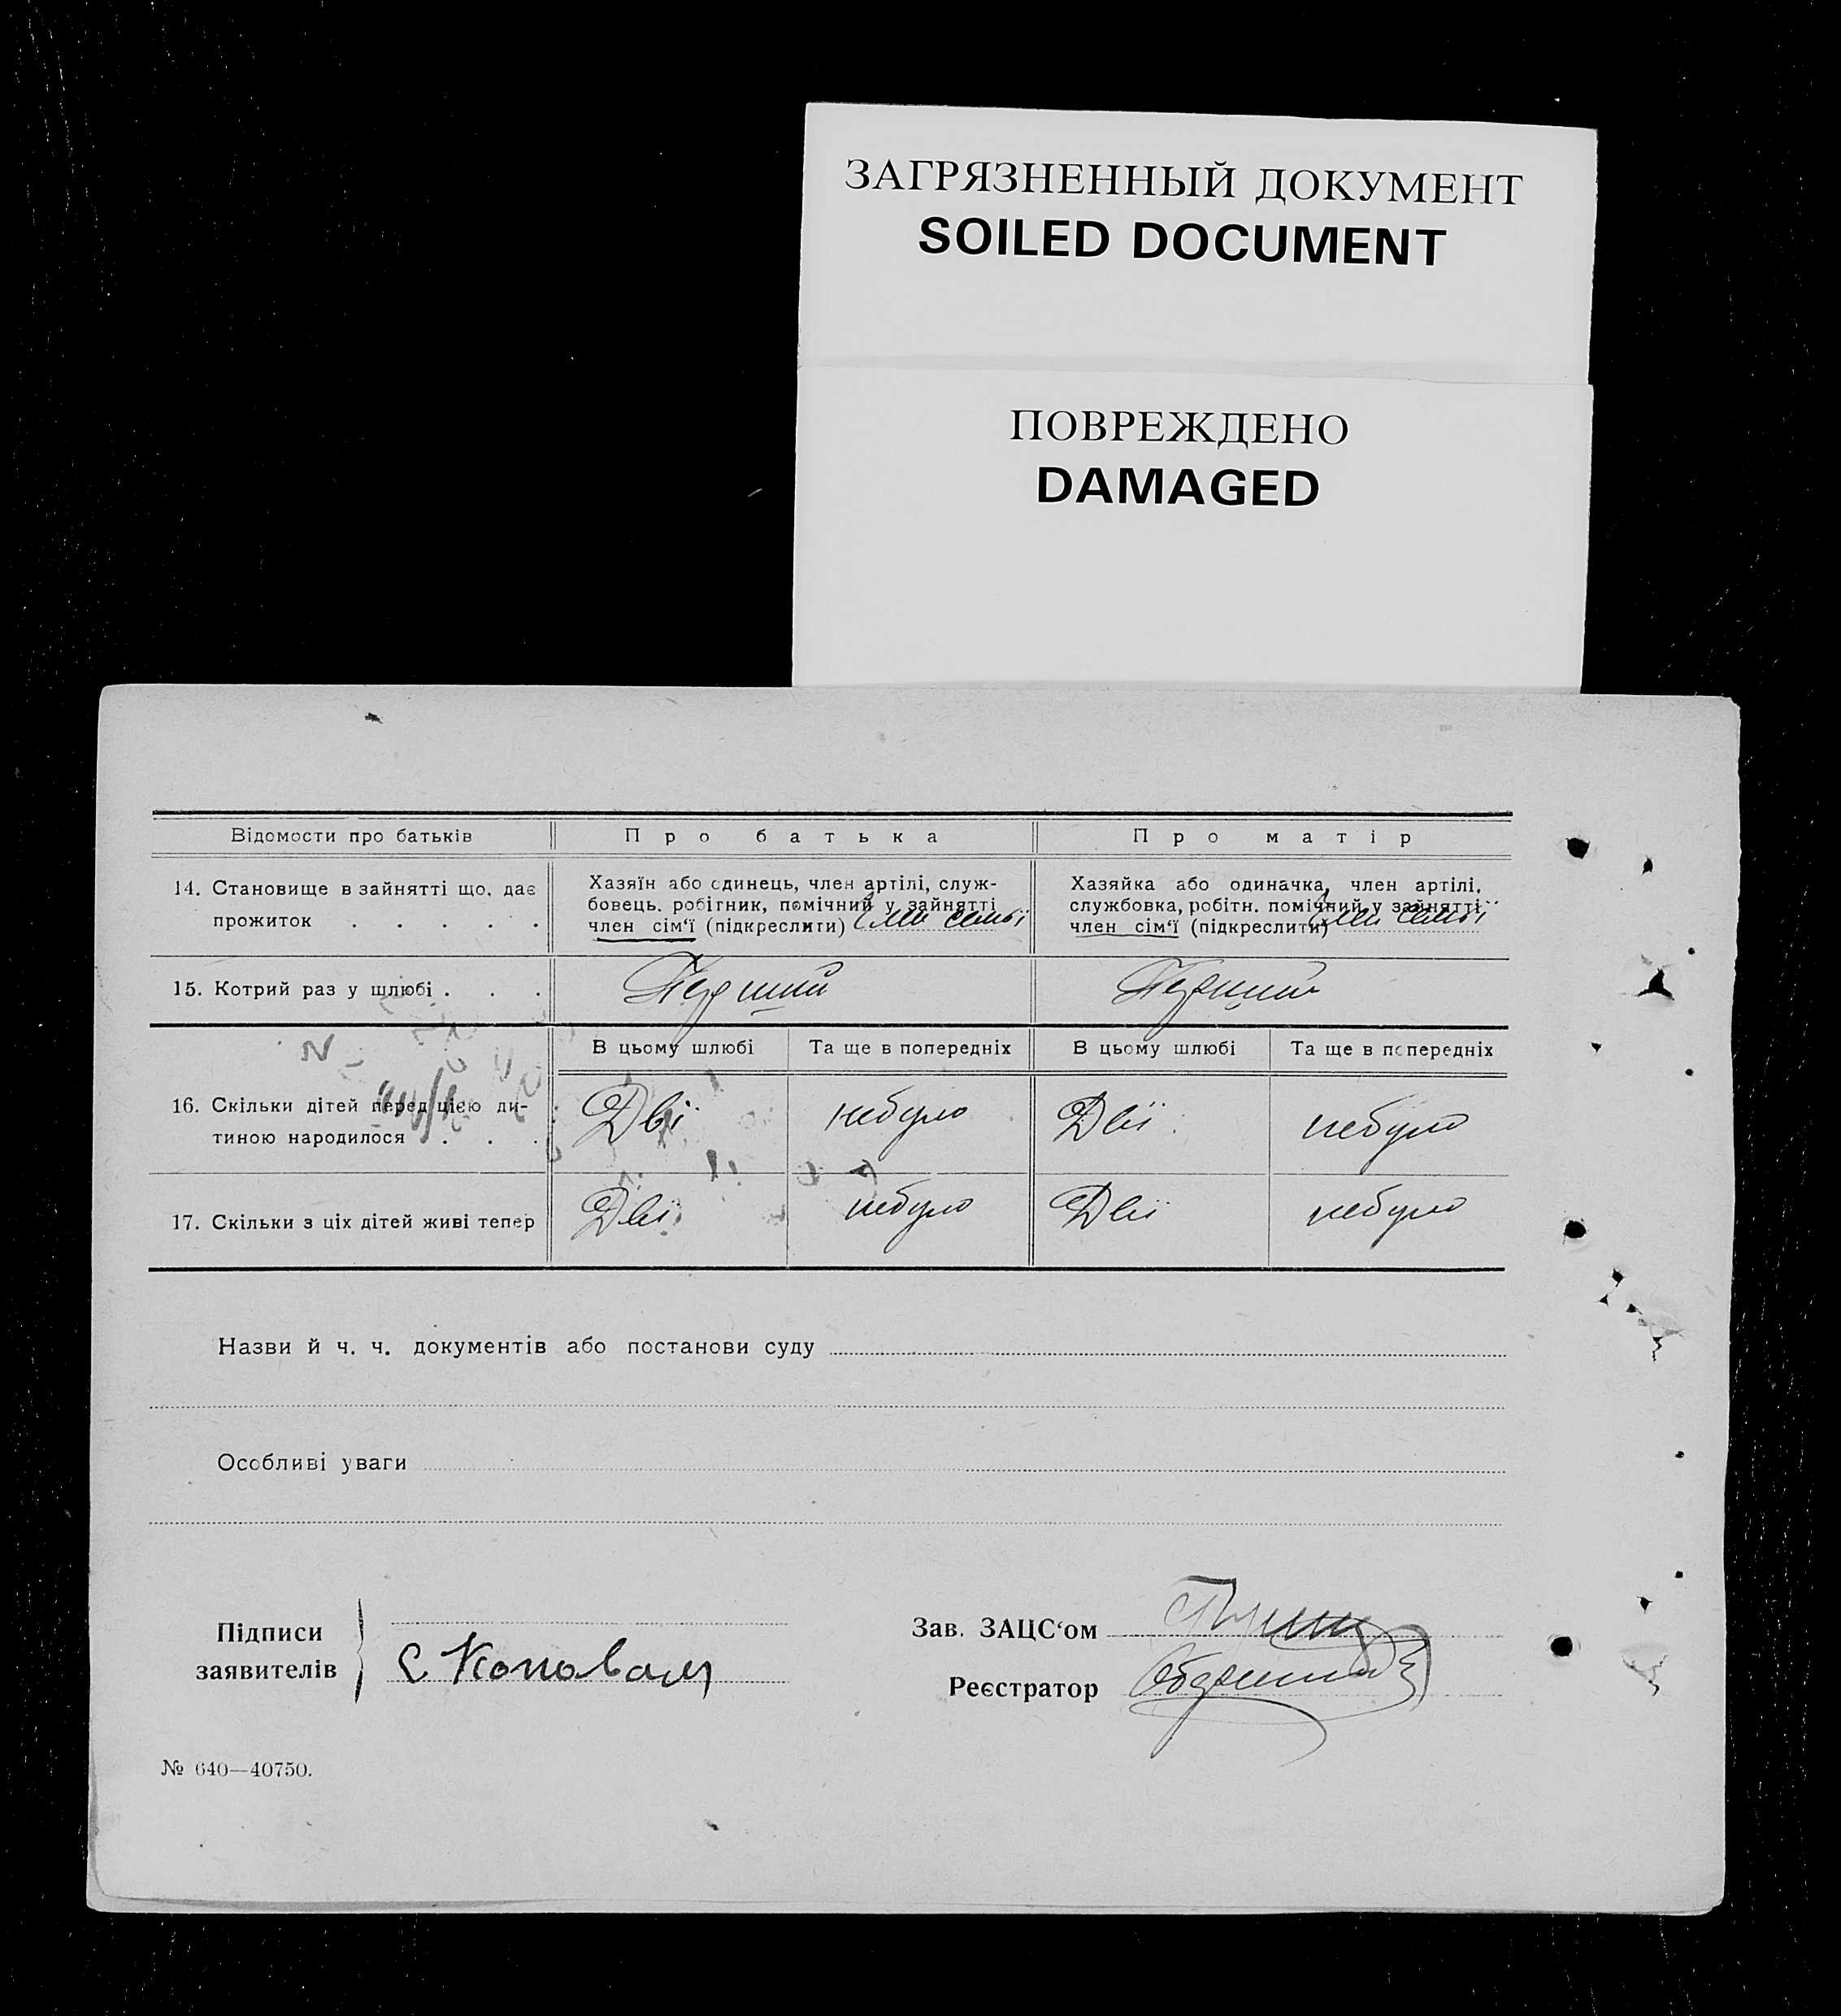 ЗАГРЯЗНЕННЫЙ ДОКУМЕНТ
SOILED DOCUMENT
ПОВРЕЖДЕНО
DAMAGED
Відомости про батьків Про батька Про матір
14. Становище в зайнятті що, дає
прожиток . . . . .
Хазяїн або єдинець, член артілі, служ-
бовець, робітник, помічний у зайнятті
член сім'ї (підкреслити) Член семьї
Хазяйка або одиначка, член артілі,
службовка, робітн. помічний у зайнятті
член сім'ї (підкреслити) Член семьї
15. Котрий раз у шлюбі . . . Першии Першии
В цьому шлюбі Та ще в попередніх В цьому шлюбі Та ще в попередніх
16. Скільки дітей перед цією ди-
тиною народилося . . .
Двії небуло Двії небуло
17. Скільки з ціх дітей живі тепер Двії небуло Двії небуло
Назви й ч. ч. документів або постанови суду
Особливі уваги
Підписи
заявителів
С Коновал
Зав. ЗАЦС'ом
Реєстратор
№ 640—40750.